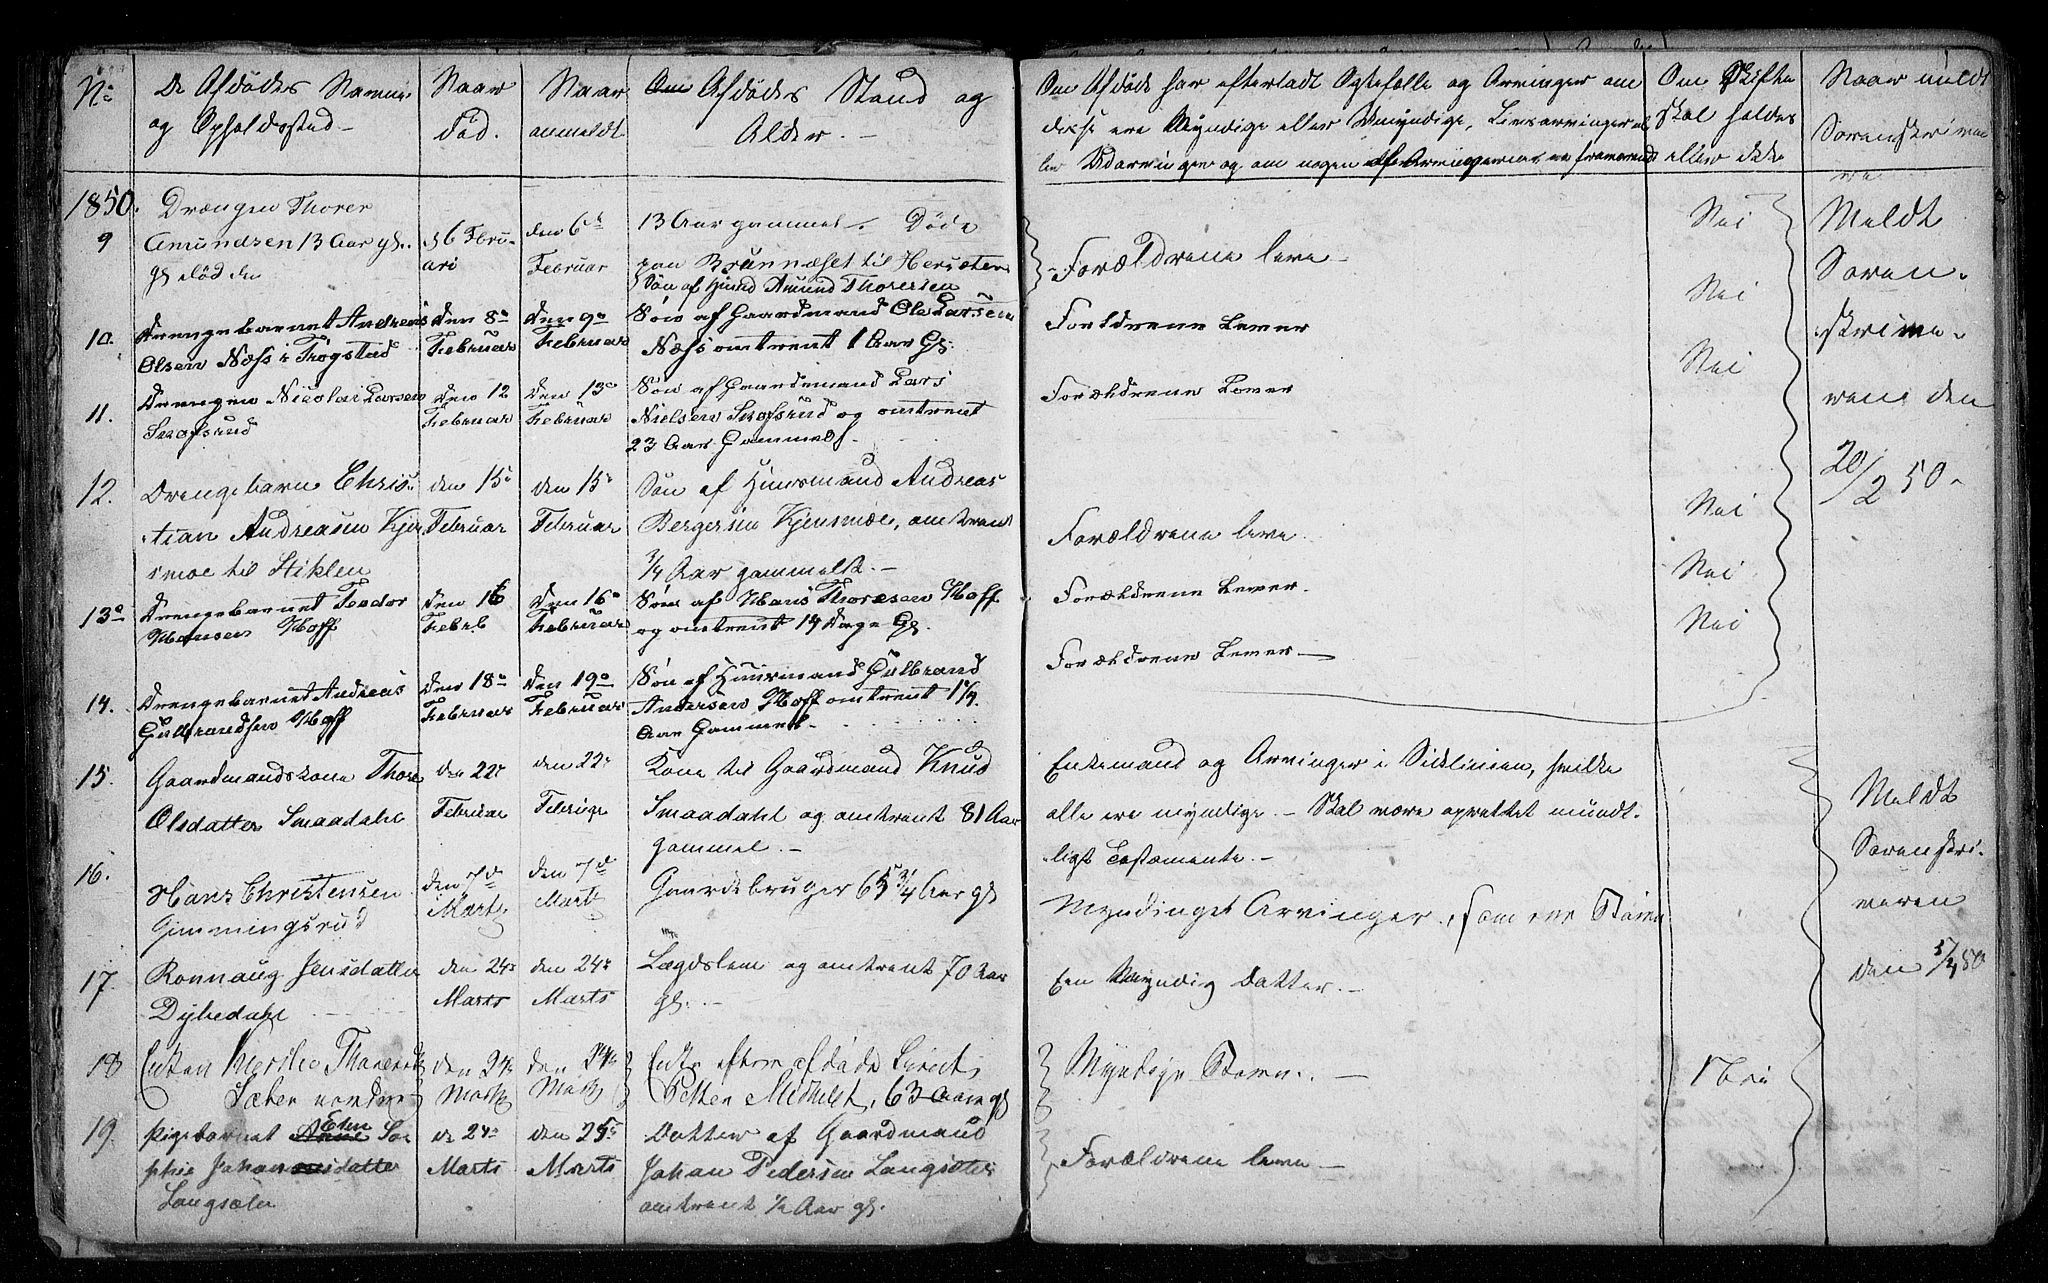 No
De Afdødes Navne
og Opholdssted
Naar
død.
Naar
anmeldt
Om Afdødes Stand og
Alder.
Om Afdøde har efterladt Ægtefælle og Arvinger om
disse ere Myndige eller Umyndige, Livsarvinger el
ler Udarvinger og om nogen af Arvingerne er fraværende
Om Skifte
skal holdes
eller ikke
Naar meldt
Sorenskrive
ren
1850.
9
Drengen Thorer
Amundsen 13 Aar gl.
d 6 Febru-
ari
den 6te
Februar
13 Aar gammel. Døde
paa Brunnæset til Hersæter
Søn af Huusmd Amund Thorersen
Forældrene leve
Nei
10.
Drengebarnet Andreas
Olsen Næss i Trøgstad
Den 8de
Februar
Den 9de
Februar
Søn af Gaardmand Ole Larsen
Næss omtrent 1 Aar Gl.
Forældrene Lever
Nei
11.
Drengen Nicolai Larsen
Den 12
Februar
Den 13de
Februar
Søn af Gaardmand Lars
Nielsen og omtrent
23 Aar Gammel.
Forældrene Lever
Nei
12.
Drengebarn Chris-
tian Andreasen Kjen
smoe til Stiklen
den 15de
Februar
den 15de
Februar
Søn af Huusmand Andreas
Bergersen Kjensmoe, omtrent
3/4 Aar gammel.
Forældrene leve
Nei
13
Drengebarnet Teodor
Hansen Hoff
Den 16
Febr
Den 16de
Februar
Søn af Hans Thoresen Hoff
og omtrent 14 Dage Gl.
Forældrene Lever.
Nei
14.
Drengebarnet Andreas
Gulbrandsen Hoff
Den 18de
Februar
Den 19de
Februar
Søn af Huusmand Gulbrand
Andersen Hoff omtrent
Aar Gammel.
Forældrene Lever
Nei
Meldt
Soren-
skrive-
ren den
20/2 50.
15.
Gaardmandskone Thore
Olsdatter Smaadahl
den 22de
Februar
den 22de
Februar
Kone til Gaardmand Knud
Smaadahl og omtrent 81 Aar
gammel.
Enkemand og Arvinger i Sidelinien, hvilke
alle ere myndige. Skal være oprettet mundt-
ligt Testamente.
16.
Hans Christensen
Gimmingsrud
den 7de
Marts
den 7de
Marts
Gaardbruger 65 3/4 Aar gl
Myndige Arvinger, som ere Børn
17.
Ronnaug Jensdatter
Dyledahl
den 24de
Marts
den 24de
Marts
Lægdslem og omtrent 70 Aar
gl.
Een Myndig Datter.
18
Enken Thorersd.
Sæter nordre
den 24de
Marts
den 24de
Marts
Enke efter afdøde
Petter, 63 Aar gl
Myndige Børn.
19.
Pigebarnet Anne Elen So
phie Johannesdatter
Langsæter
d 24de
Marts
den 25de
Marts
Datter af Gaardmand
Johan Pedersen Langsæter
omtrent 1/2 Aar gl.
Forældrene leve
Meldt
Sorenskri-
veren
den 5/4 50